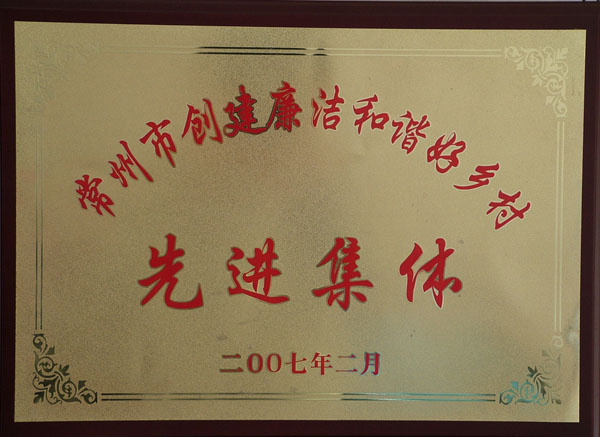 常州市创建廉洁和谐好乡村
先进集体
二〇〇七年二月